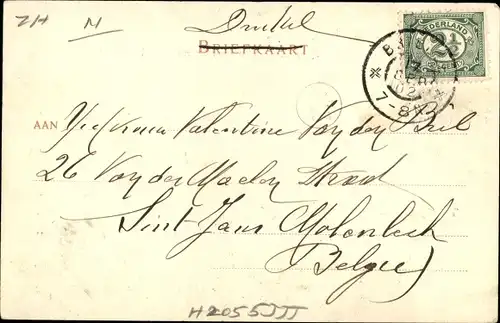 ZH M Drukel
BRIEFKAART
NEDERLAND
2½
CENT
7-8V
AAN Mejevrouw Valentine Van den Briel
26 Van der Maelen Straat
Sint Jans Molenbeek
(Belgie)
H2055JJJ